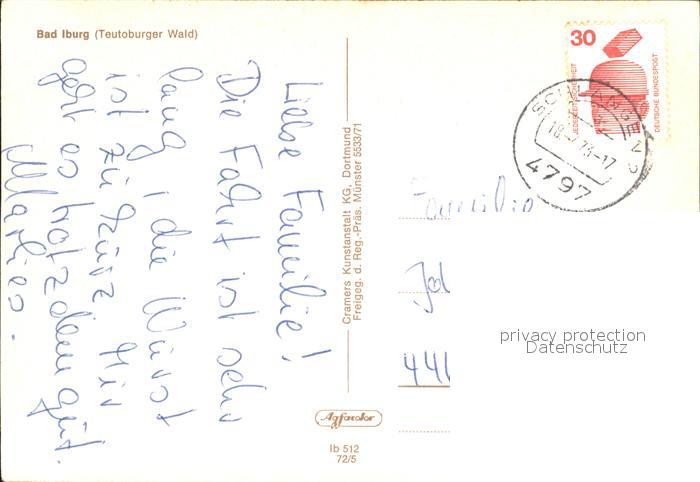 Bad Iburg (Teutoburger Wald)
Liebe Familie!
Die Fahrt ist sehr
lang, die Wurst
ist zu kurz. Mir
geht es trotzdem gut.
Marlies.
Cramers Kunstanstalt KG, Dortmund
Freigeg. d. Reg.-Präs. Münster 5533/71
Agfacolor
Ib 512
72/5
30
JEDERZEIT SICHERHEIT
DEUTSCHE BUNDESPOST
SCHLANGEN 2
4797
Familie
Jo
441
privacy protection
Datenschutz